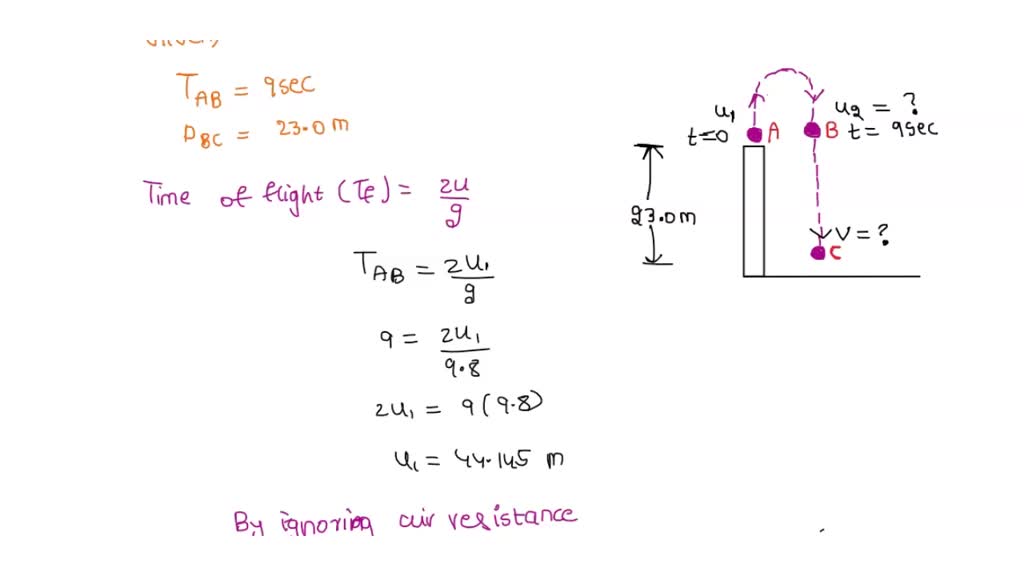 T_AB = 9sec
D_BC = 23.0 m
Time of flight (T_f) = 2u/g
T_AB = 2u₁/g
9 = 2u₁/9.8
2u₁ = 9(9.8)
u₁ = 44.145 m
By ignoring air resistance
u₁
t=0
A
u₂ = ?
B t = 9sec
23.0m
V = ?
C